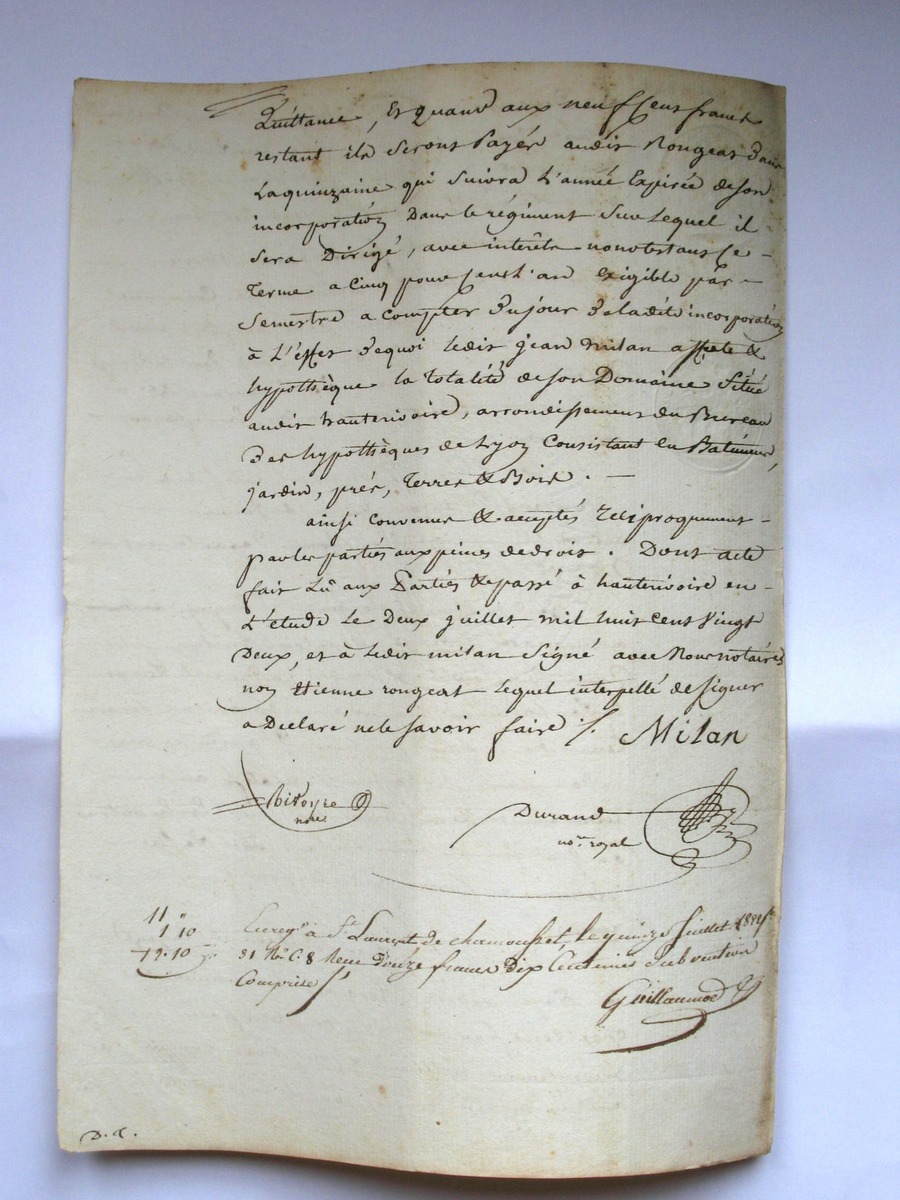 Quittance, Et Quand aux neuf Cent francs
restant ils Seront Payés audit Rongeat Dans
La quinzaine qui Suivra L'année Expirée de son
incorporation Dans le régiment Sur Lequel il
Sera Dirigé, avec intérêts nonobstant Ce -
Terme a Cinq pour Cent L'an exigible par -
Semestre a compter Du jour De la dite incorporation
à L'effet De quoi ledit jean Milan affecte &
hypothèque la totalité de son Domaine Situé
audit hauterivoire, arrondissement du Bureau
Des hypothèques de Lyon Consistant en Batiment,
jardin, prés, Terres & Bois. -
ainsi Convenu & accepté Réciproquement -
par les parties aux peines de droit. Dont acte
fait Lû aux Parties & passé à hauterivoire en -
L'étude Le Deux juillet mil huit cent Vingt
Deux, et à Ledit milan Signé avec Nous notaires
non Etienne rongeat Lequel interpellé de Signer
a Déclaré ne le Savoir faire ./.
Milan
nore
Durand
nore royal
11 "
1 10
12.10
Enregé à St Laurent de chamousset, le quinze juillet 1822 fo
81 Ro C. 8 Reçu Douze francs Dix Centimes Subvention
Comprise
Guillaumod
D. T.